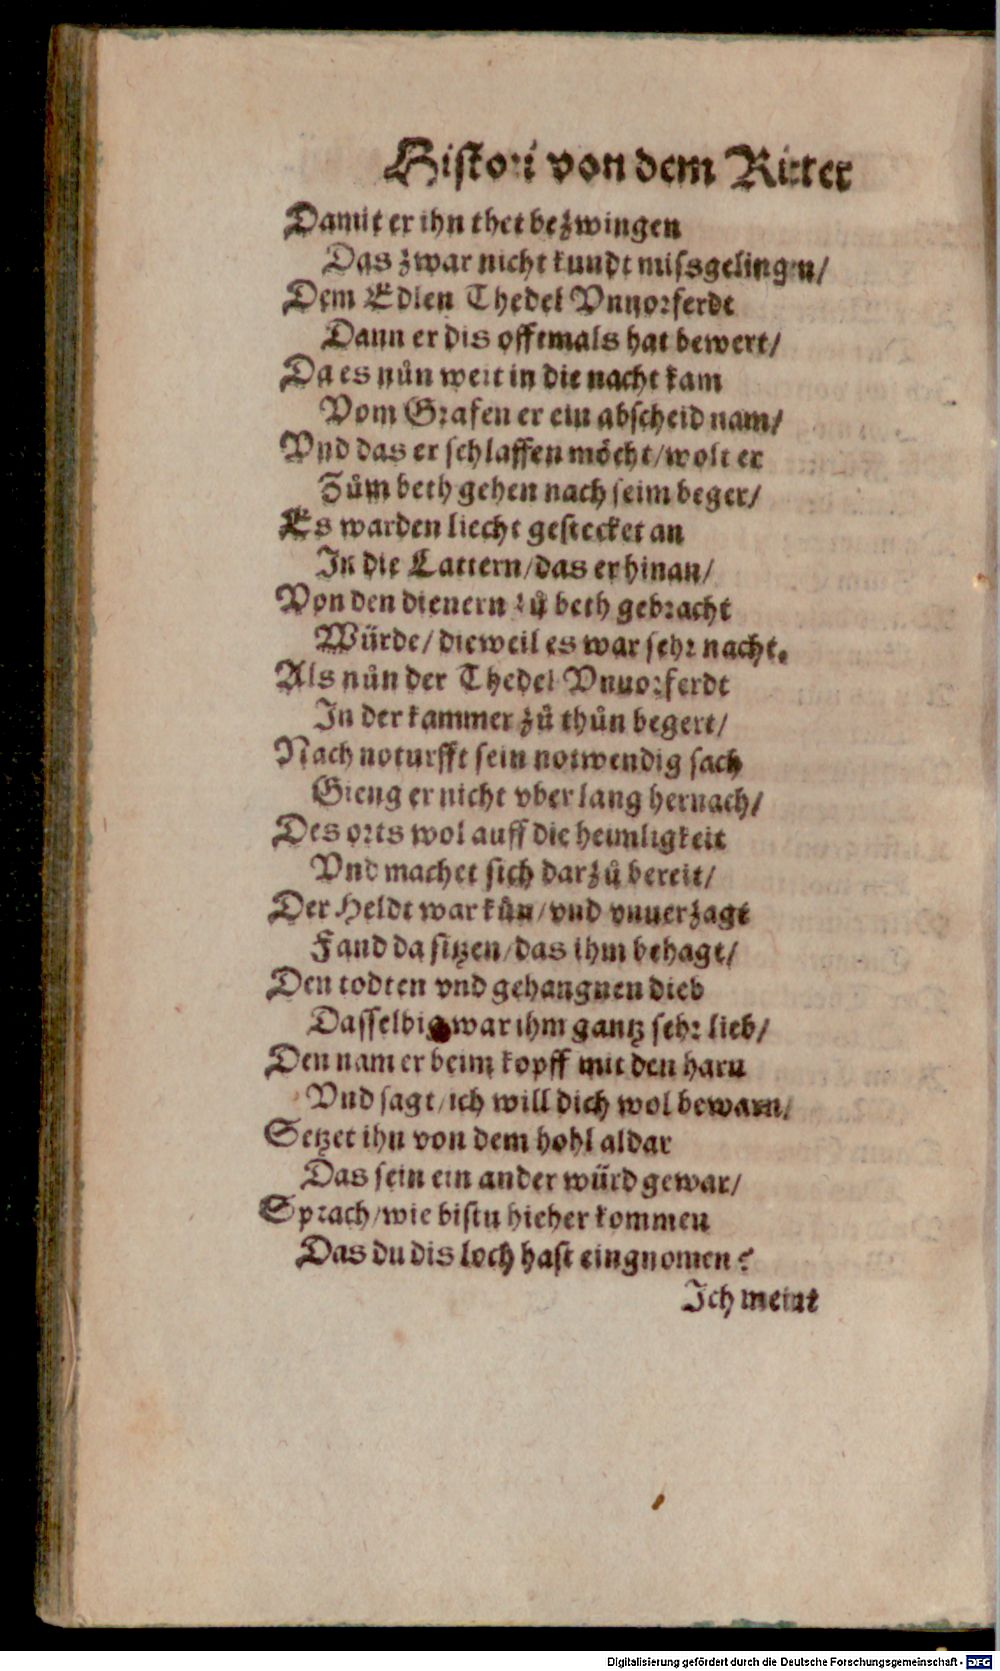 Histori von dem Ritter
Damit er ihn thet bezwingen
Das zwar nicht kundt missgelingen/
Dem Edlen Thedel Vnuorferdt
Dann er dis offtmals hat bewert/
Da es nůn weit in die nacht kam
Vom Grafen er ein abscheid nam/
Vnd das er schlaffen möcht/wolt er
Zům beth gehen nach seim beger/
Es warden liecht gestecket an
In die Lattern/das er hinan/
Von den dienern zů beth gebracht
Würde/dieweil es war sehr nacht.
Als nůn der Thedel Vnuorferdt
In der kammer zů thůn begert/
Nach noturfft sein notwendig sach
Gieng er nicht vber lang hernach/
Des orts wol auff die heimligkeit
Vnd machet sich darzů bereit/
Der Heldt war kůn/vnd vnuerzagt
Fand da sitzen/das ihm behagt/
Den todten vnd gehangnen dieb
Dasselbig war ihm gantz sehr lieb/
Den nam er beim kopff mit den harn
Vnd sagt/ich will dich wol bewarn/
Setzet ihn von dem hohl aldar
Das sein ein ander würd gewar/
Sprach/wie bistu hieher kommen
Das du dis loch hast eingnomen?
Ich meint
Digitalisierung gefördert durch die Deutsche Forschungsgemeinschaft - DFG